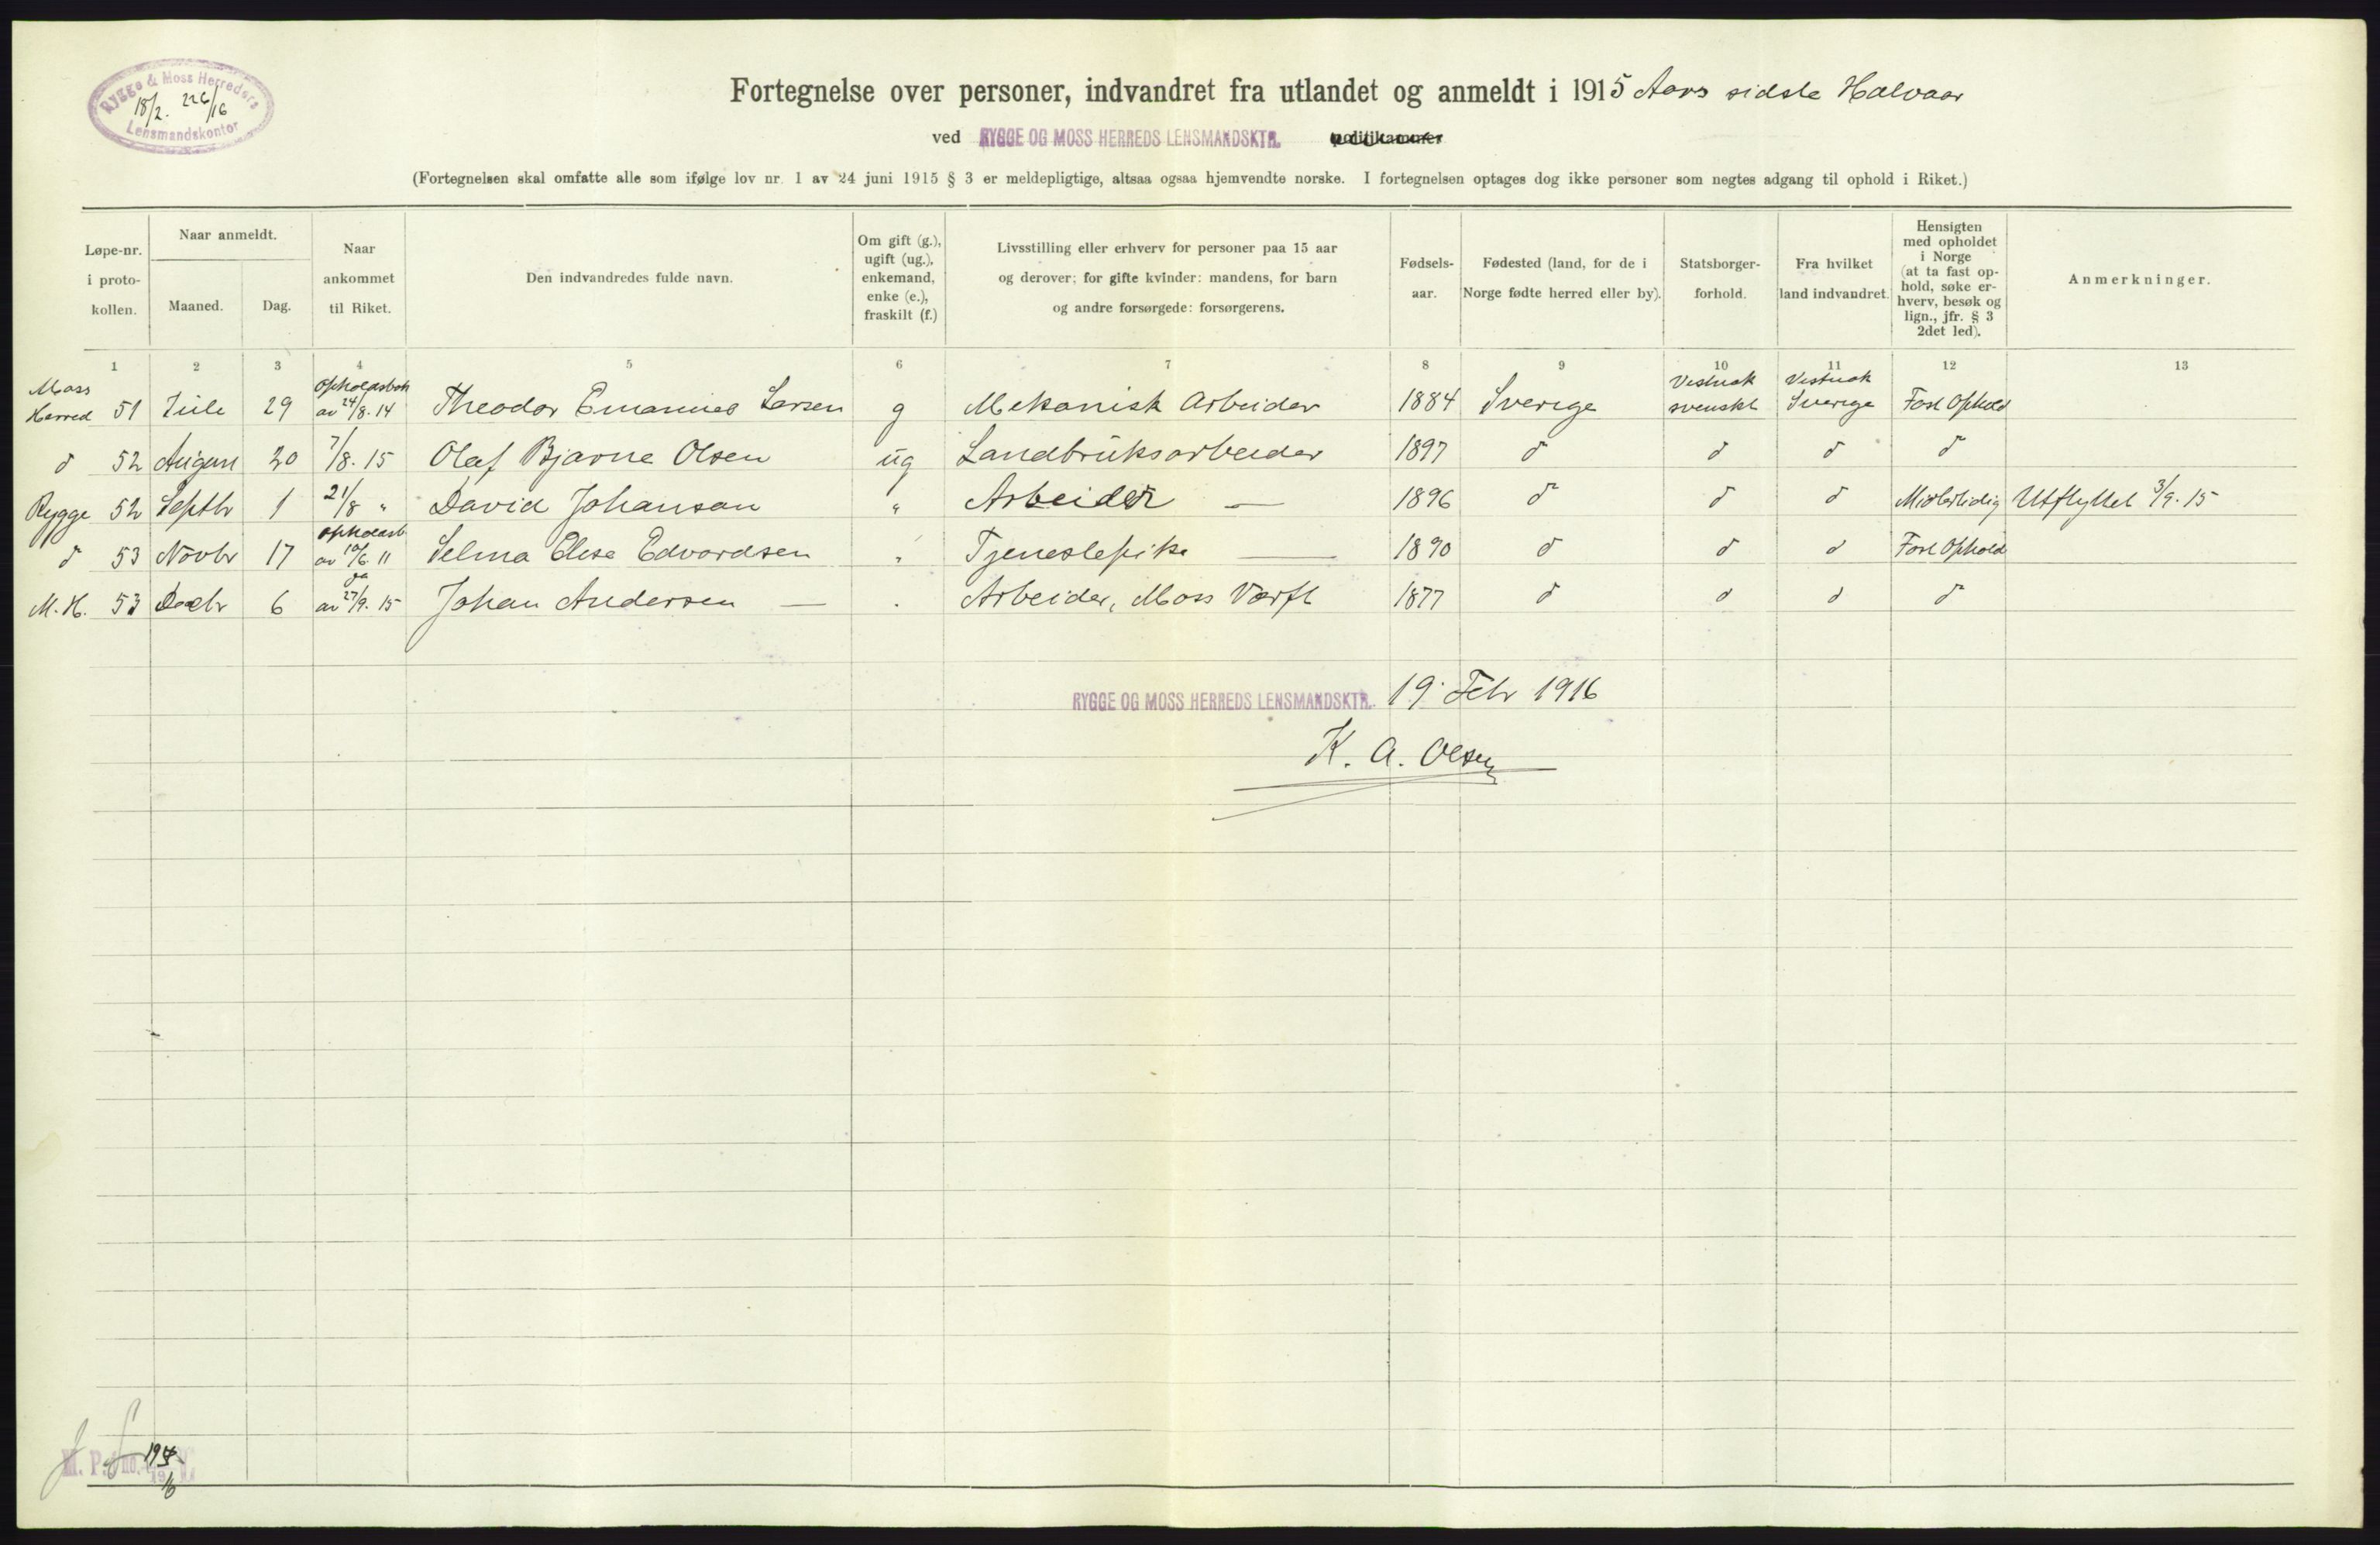 Rygge & Moss Herreders
18/2. 226/16
Lensmandskontor
Fortegnelse over personer, indvandret fra utlandet og anmeldt i 1915 Aars sidste Halvaar
ved RYGGE OG MOSS HERREDS LENSMANDSKTR. politikammer
(Fortegnelsen skal omfatte alle som ifølge lov nr. 1 av 24 juni 1915 § 3 er meldepligtige, altsaa ogsaa hjemvendte norske. I fortegnelsen optages dog ikke personer som negtes adgang til ophold i Riket.)
Løpe-nr.
i proto-
kollen.
Naar anmeldt.
Maaned.
Dag.
Naar
ankommet
til Riket.
Den indvandredes fulde navn.
Om gift (g.),
ugift (ug.),
enkemand,
enke (e.),
fraskilt (f.)
Livsstilling eller erhverv for personer paa 15 aar
og derover; for gifte kvinder: mandens, for barn
og andre forsørgede: forsørgerens.
Fødsels-
aar.
Fødested (land, for de i
Norge fødte herred eller by).
Statsborger-
forhold.
Fra hvilket
land indvandret.
Hensigten
med opholdet
i Norge
(at ta fast op-
hold, søke er-
hverv, besøk og
lign., jfr. § 3
2det led).
Anmerkninger.
1 2 3 4 5 6 7 8 9 10 11 12 13
Moss Herred 51 Jule 29 Opholdsbok av 24/8.14 Theodor Emanuel Larsen g Mekanisk Arbeider 1884 Sverige svenskt Sverige Fast Ophold
d 52 August 20 7/8.15 Olaf Bjarne Olsen ug Landbruksarbeider 1897 d d d d
Rygge 52 Septbr 1 21/8 " David Johanson " Arbeider — 1896 d d d Midlertidig Utflyttet 3/9.15
d 53 Novbr 17 Opholdsb av 10/6.11 Selma Elise Edvardsen " Tjenestepike — 1890 d d d Fast Ophold
M.H. 53 Decbr 6 av 27/9.15 Johan Andersen — " Arbeider, Moss Værft 1877 d d d d
RYGGE OG MOSS HERREDS LENSMANDSKTR. 19. Febr 1916
K. A. Olsen